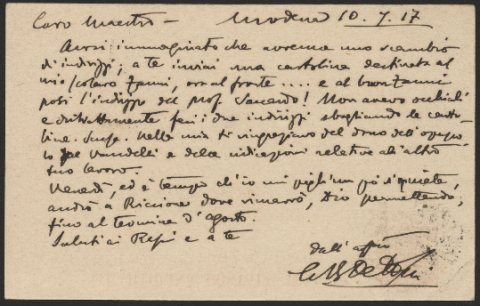 Caro Maestro — Modena 10.7.17
Avrai immaginato che avremo uno scambio
di indirizzi; a te inviai una cartolina destinata al
mio scolaro Zanni, ora al fronte .... e al buon Zanni
posi l'indirizzo del prof. Saccardo! Non avevo occhiali
e distrattamente feci i due indirizzi sbagliando le carto-
line. Nella mia ti ringraziavo del dono dell'opuscolo
Vandelli e delle indicazioni relative all'altro
tuo lavoro.
Venerdì, ed è tempo ch'io mi pigli un po' di quiete,
andrò a Riccione dove rimarrò, Dio permettendo,
fino al termine d'agosto.
Saluti ai e a te
dall'aff.mo
GB De Toni